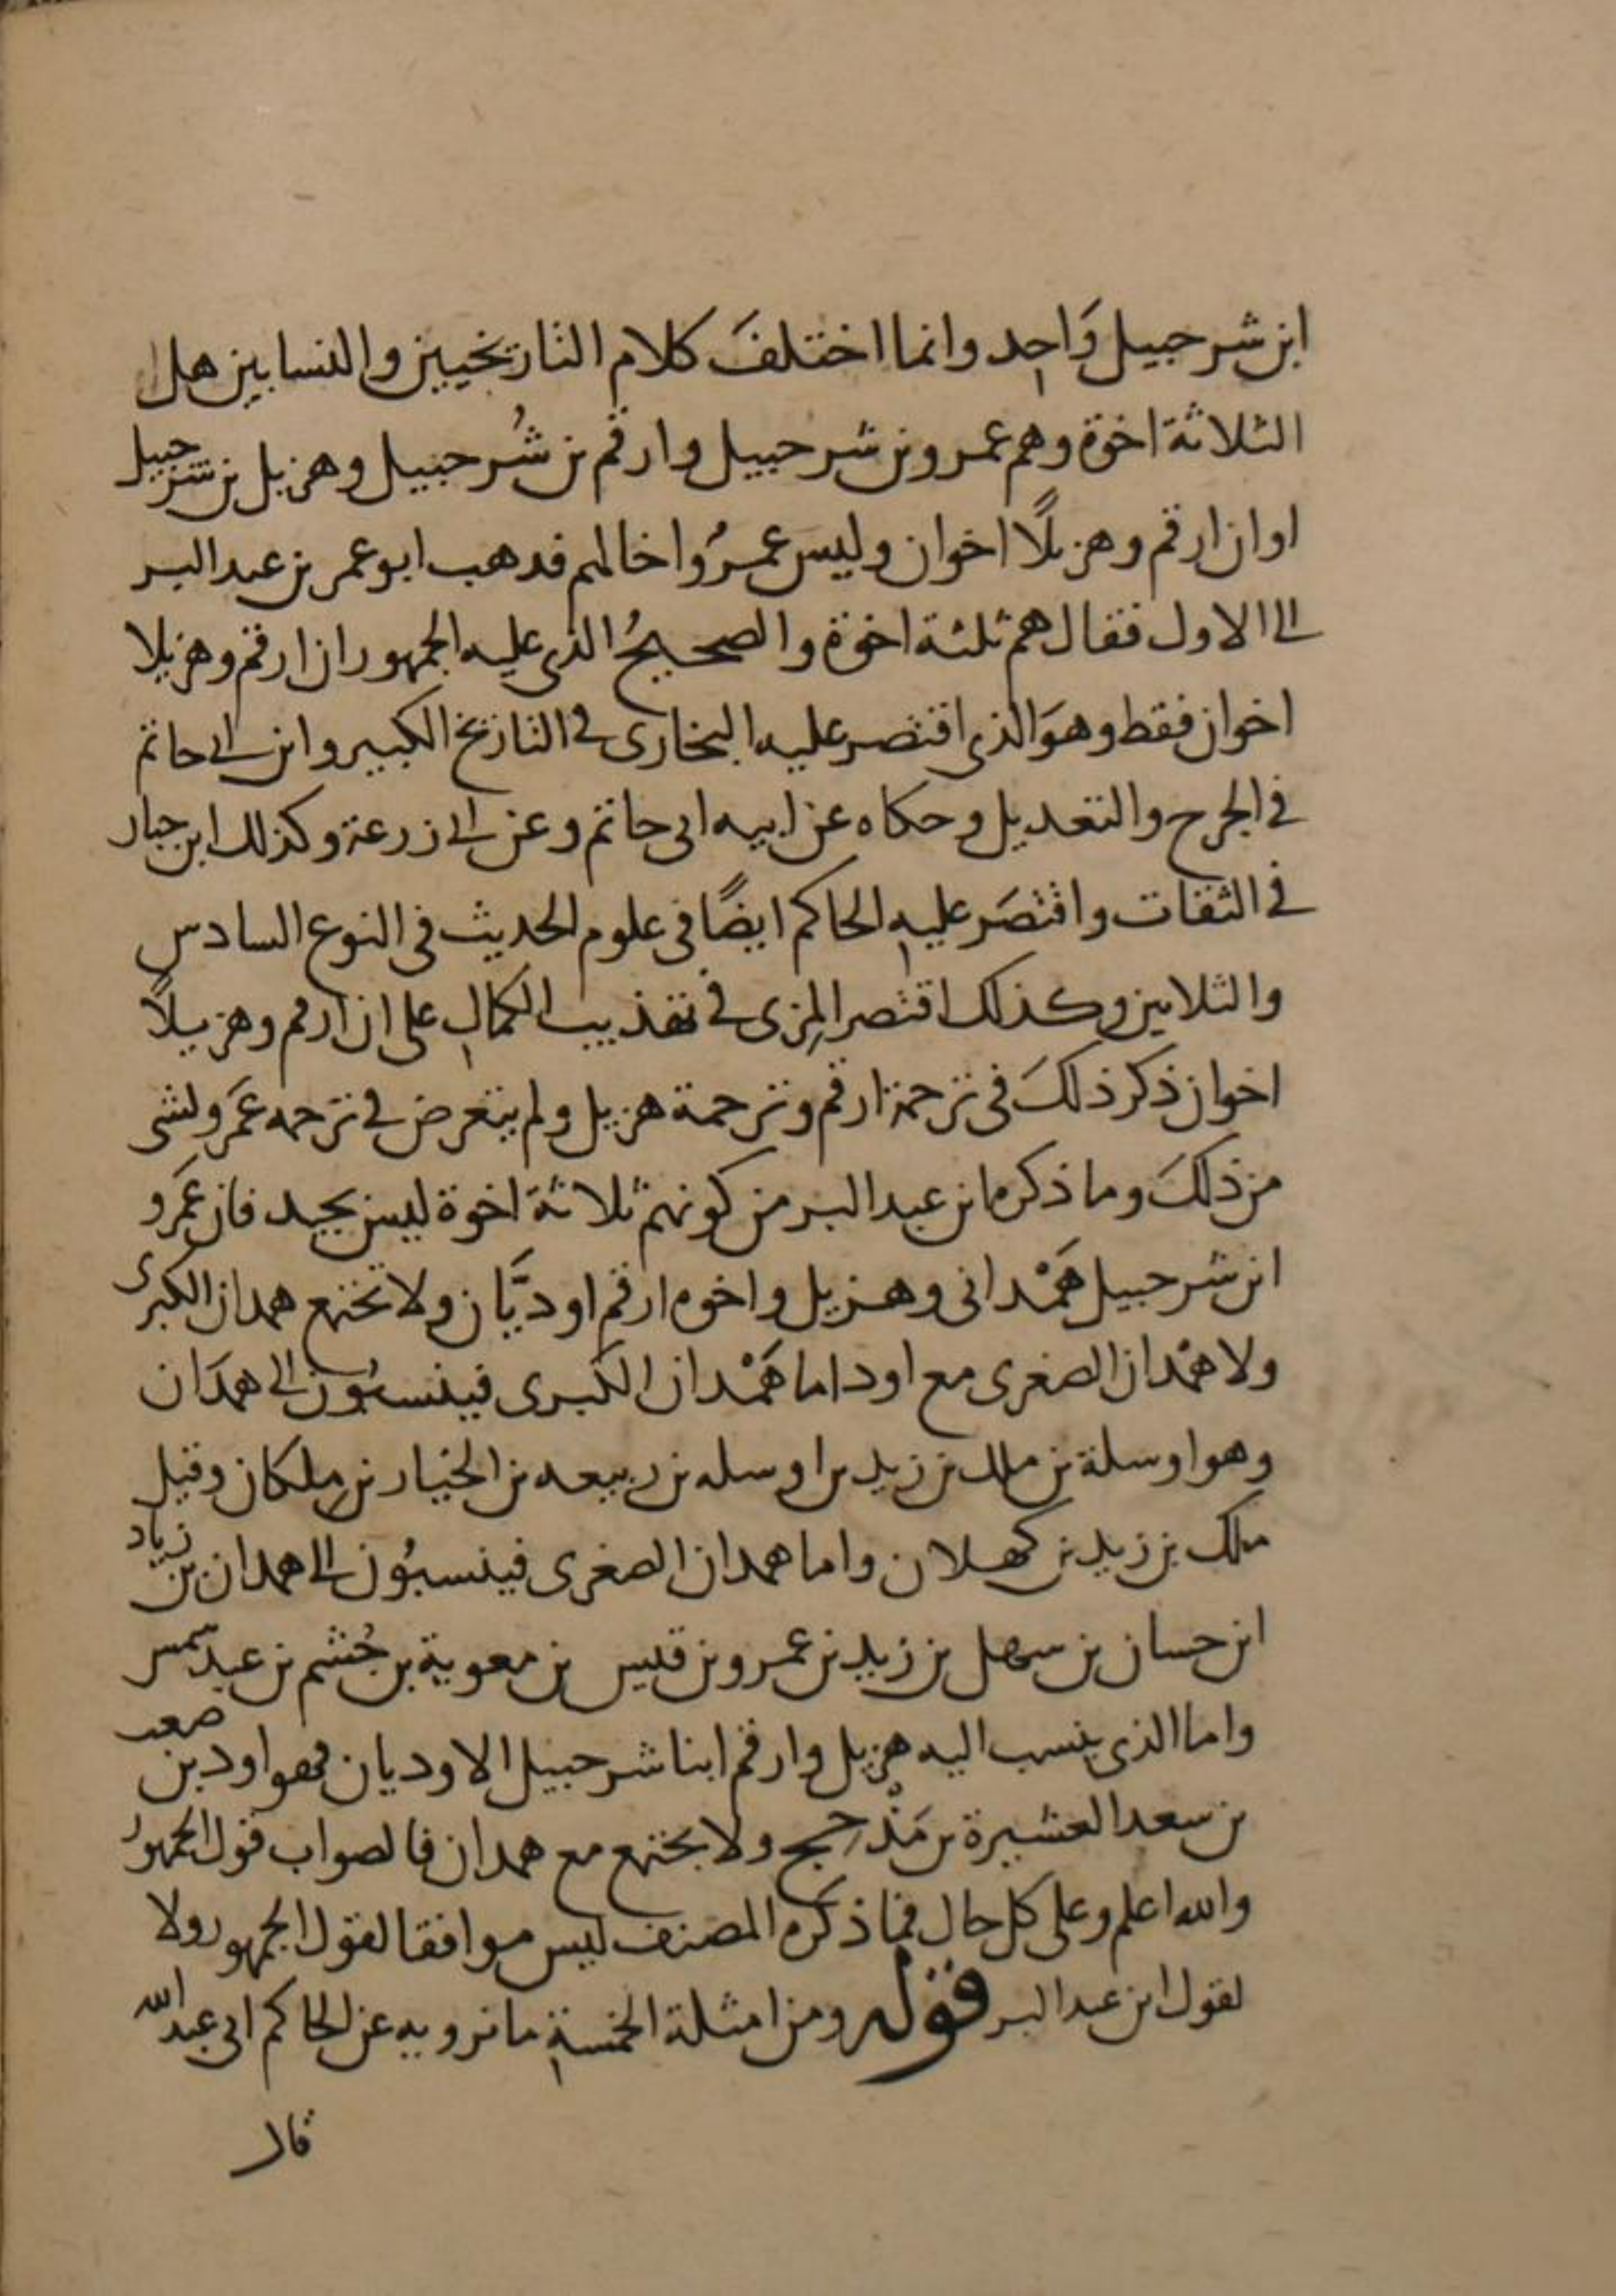 ابن شرحبيل وَاحِد وانما اختلفَ كلام التاريخيين والنسابين هل
الثلاثة اخوة وهم عمرو بن شرحبيل وارقم بن شُرحبيل وهزيل بن شرحبيل
او ان ارقم وهزيلًا اخوان وليسَ عمرُو اخا لهم فذهب ابو عمر بن عبد البر
الى الاول فقال هم ثلثة اخوة والصحيحُ الذى عليه الجمهور ان ارقم وهزيلا
اخوان فقط وهوَ الذى اقتصر عليه البخارى فى التاريخ الكبير وابن ابى حاتم
فى الجرح والتعديل وحكاه عن ابيه ابى حاتم وعن ابى زرعة وكذلك ابن حبان
فى الثقات واقتصَر عليهِ الحاكم ايضًا فى علوم الحديث فى النوع السادس
والثلاثين وكذلك اقتصر المِزى فى تهذيب الكمالِ على ان ارقم وهزيلًا
اخوان ذكر ذلكَ فى ترجمة ارقم وترجمة هزيل ولم يتعرض فى ترجمه عَمرو لشى
من ذلكَ وما ذكره ابن عبد البر من كونهم ثلاثة اخوة ليس بجيد فان عَمرو
ابن شرحبيل هَمْدانى وهزيل واخوه ارقم اوديَّان ولا تجتمع همدان الكبرى
ولا همْدان الصغرى مع اود اما هَمْدان الكبرى فينسبُون الى همدَان
وهو اوسلة بن ملك بن زيد بن اوسله بن ربيعه بن الخيار بن مِلكان وقيل
ملك بن زيد بن كهلان واما همدان الصغرى فينسبُون الى همدان بن زياد
ابن حسان بن سهل بن زيد بن عمرو بن قيس بن معوية بن جُشم بن عبد شمس
واما الذى ينسب اليه هزيل وارقم ابنا شرحبيل الاوديان فهو اود بن صعب
بن سعد العشيرة بن مَذْحِج ولا يجتمع مع همدان فالصواب قول الجمهورُ
والله اعلم وعلى كل حال فما ذكره المصنف ليس موافقا لقول الجمهور ولا
لقول ابن عبد البر قوله ومن امثلة الخمسةِ ما نرويه عن الحاكم ابى عبد الله
قال